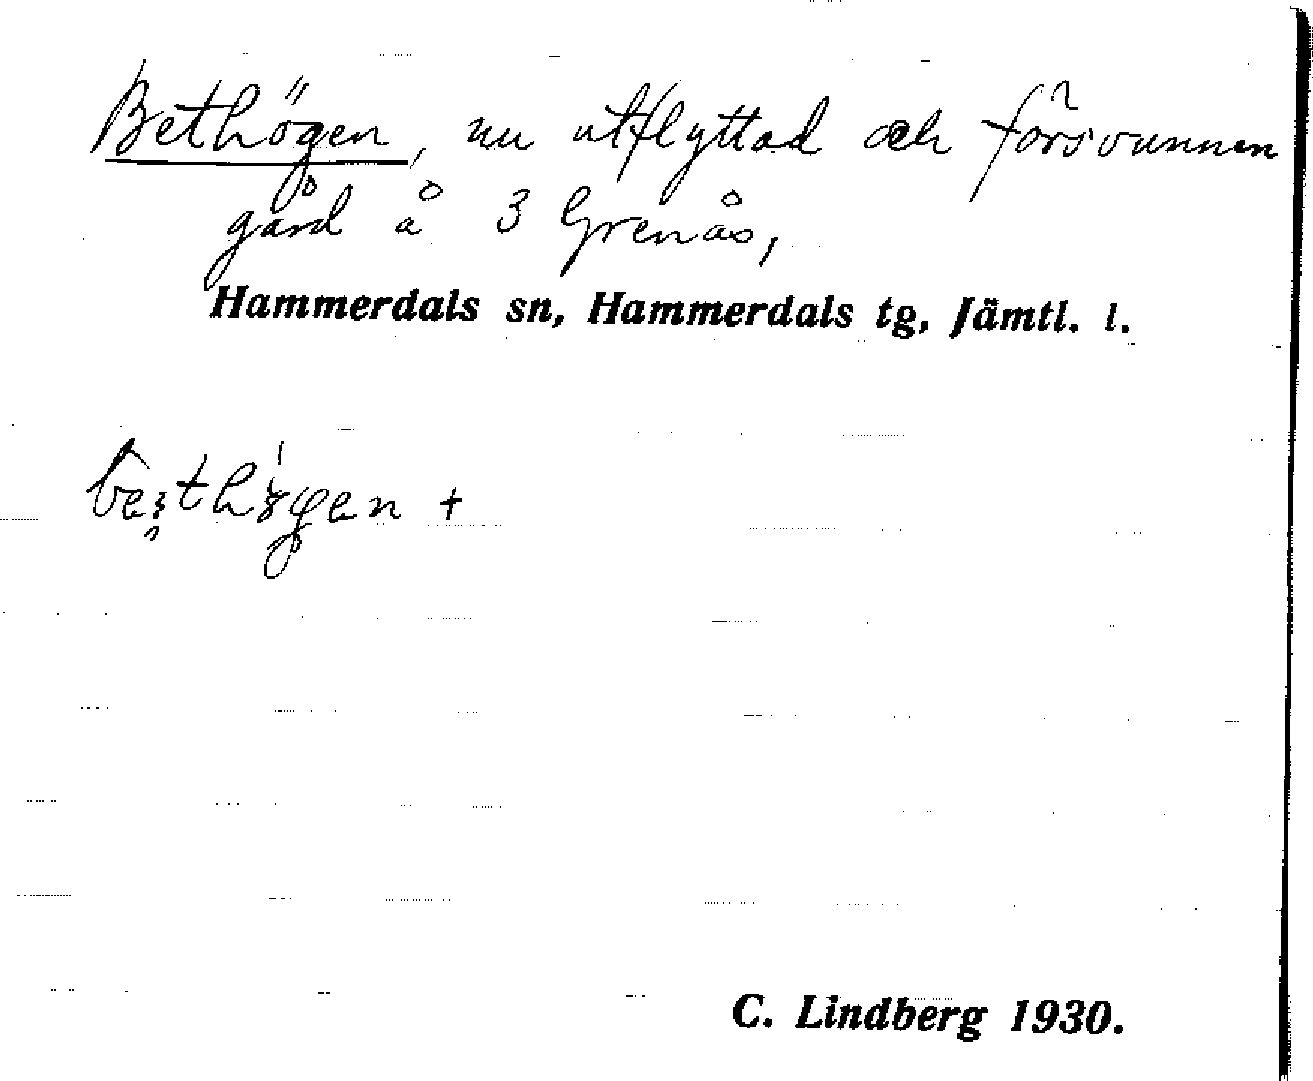 Bethögen, nu utflyttad och försvunnen
gård å 3 Grenås,
Hammerdals sn, Hammerdals tg, Jämtl. l.
C. Lindberg 1930.